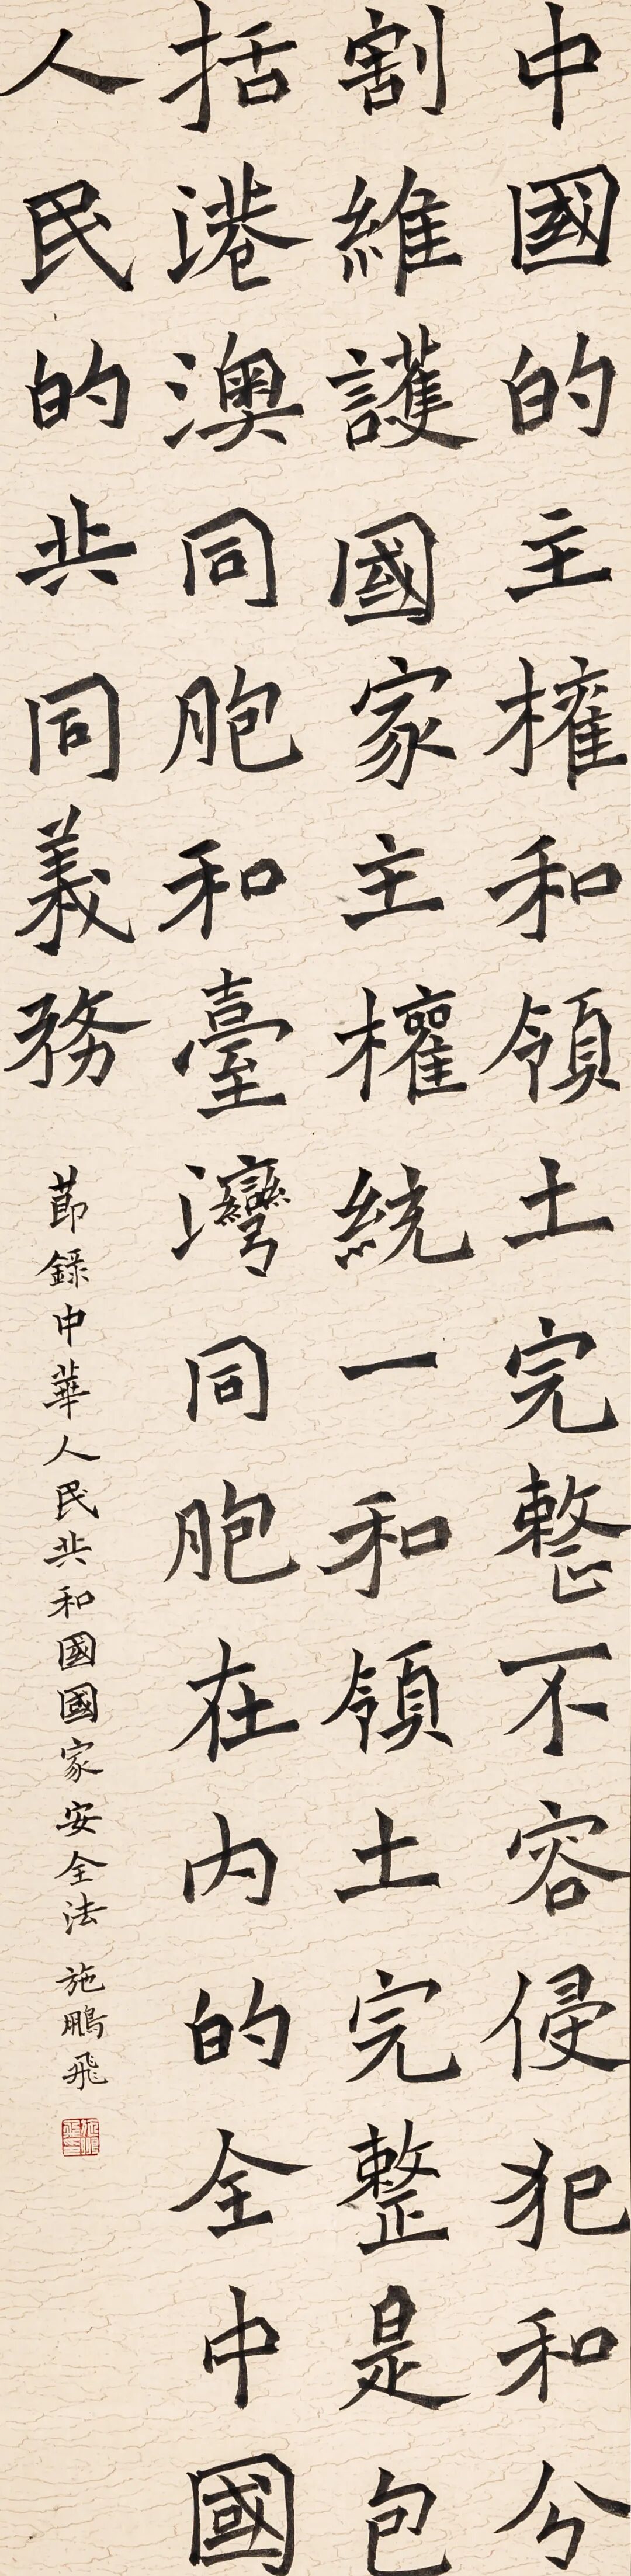 中國的主權和領土完整不容侵犯和分
割維護國家主權統一和領土完整是包
括港澳同胞和臺灣同胞在内的全中國
人民的共同義務
節錄中華人民共和國國家安全法 施鵬飛